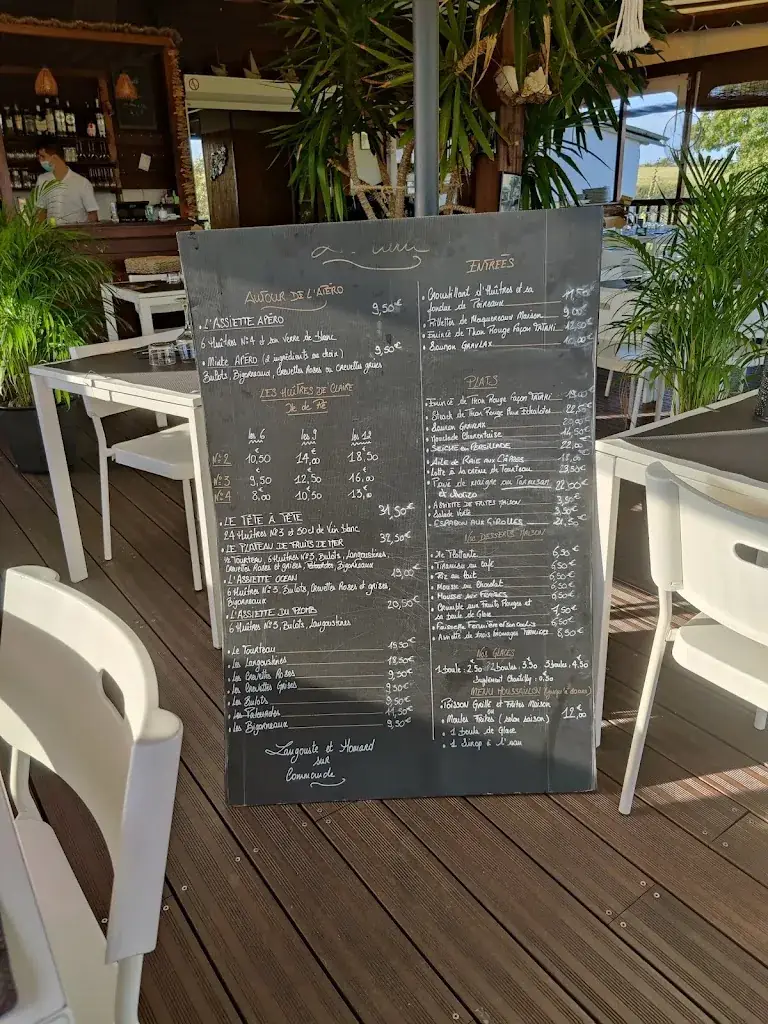 AUTOUR DE L'APÉRO
L'ASSIETTE APÉRO 9,50€
6 Huîtres N°4 et son verre de blanc
Mixte APÉRO (2 ingrédients au choix) 9,50€
Bulots, Bigorneaux, Crevettes Roses ou Crevettes grises
LES HUÎTRES DE CLAIRE
Ile de Ré
les 6 les 9 les 12
N°2 10,50 14,00 18,50
N°3 9,50 12,50 16,00
N°4 8,00 10,50 13,00
LE TÊTE À TÊTE 31,50€
24 Huîtres N°3 et 50cl de Vin blanc
LE PLATEAU DE FRUITS DE MER 32,50€
½ Tourteau, 6 Huîtres N°3, Bulots, Langoustines,
Crevettes Roses et grises, Palourdes, Bigorneaux
L'ASSIETTE OCEAN 19,00€
6 Huîtres N°3, Bulots, Crevettes Roses et grises,
Bigorneaux
L'ASSIETTE DU 20,50€
6 Huîtres N°3, Bulots, Langoustines
Le Tourteau 19,50€
Les Langoustines 18,50€
Les Crevettes Roses 9,50€
Les Crevettes Grises 9,50€
Les Bulots 9,50€
Les Palourdes 11,50€
Les Bigorneaux 9,50€
Langouste et Homard
sur
Commande
ENTRÉES
Croustillant d'Huîtres et sa
fondue de Poireaux 11,50€
Rillettes de Maquereaux Maison
Émincé de Thon Rouge Façon TATAKI
Saumon GRAVLAX
PLATS
Émincé de Thon Rouge Façon TATAKI
Steack de Thon Rouge Aux Echalotes
Saumon GRAVLAX
Mouclade Charentaise
SEICHE EN PERSILLADE 22,00
AILE DE RAIE AUX CÂPRES
Lotte à la crème de Tourteau 23,50€
Pavé de maigre au Parmesan 22,00€
et chorizo
ASSIETTE DE FRITES MAISON 3,50€
Salade Verte
ESPADON AUX GIROLLES 21,50€
NOS DESSERTS MAISON
Ile Flottante 6,50€
Tiramisu au café 6,50€
Riz au lait 6,50€
Mousse au Chocolat 6,50€
Mousse aux
Crumble aux Fruits Rouges et
sa boule de Glace 7,50€
Faisselle Fermière et son coulis 6,50€
Assiette de trois fromages 8,50€
NOS GLACES
1 boule : 2.50 2 boules : 3.50 3 boules : 4.50
Supplément Chantilly : 0.50
MENU MOUSSAILLON
POISSON Grillé et Frites Maison
ou
Moules Frites (selon saison) 12,00
1 boule de Glace
1 Sirop à l'eau